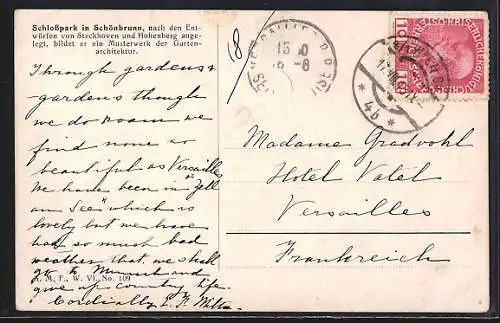 Schloßpark in Schönbrunn, nach den Ent-
würfen von Steckhoven und Hohenberg ange-
legt, bildet er ein Musterwerk der Garten-
architektur.
Through gardens &
gardens though
we do roam we
find none so
beautiful as Versailles
We have been in "Zell
am See" which is
lovely but we have
had so much bad
weather that we shall
go to Munich and
give up country life.
B. M. F., W. VI. No. 109
Cordially E. F.
18
VERSAILLES
15
WIEN
* 4b *
10
Madame Gradvohl
Hotel Vatel
Versailles
Frankreich